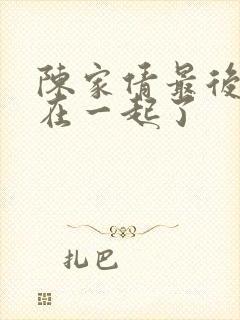 陳家倩最後
在一起了
扎巴